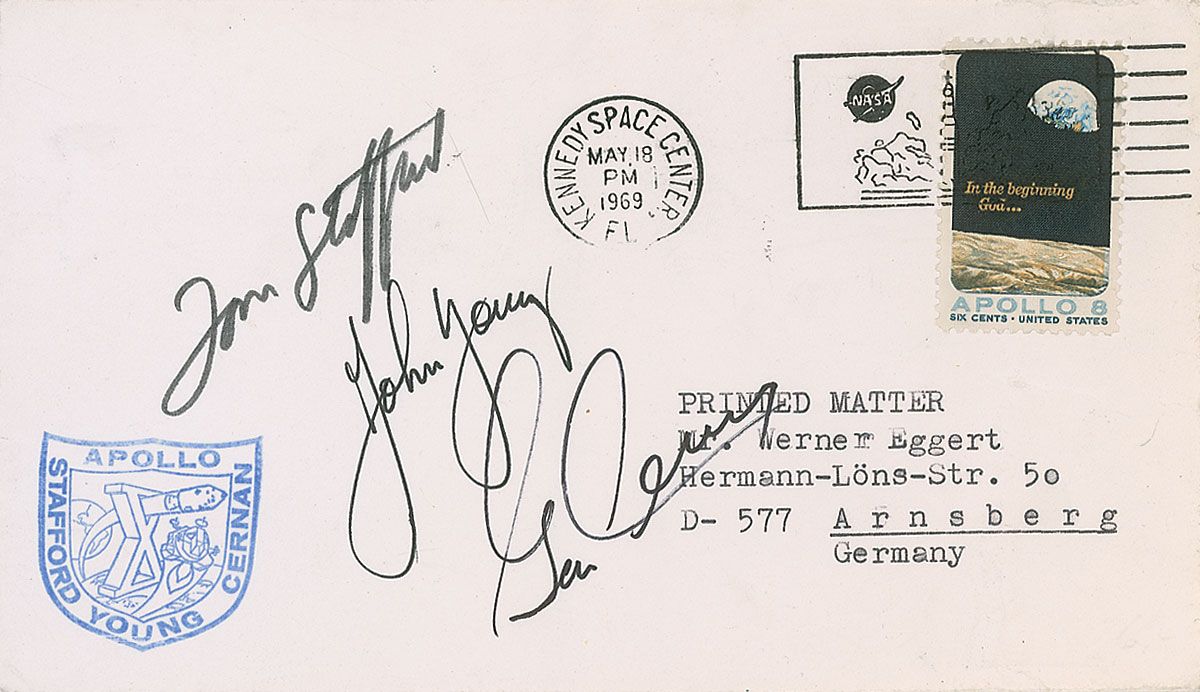 NASA
KENNEDY SPACE CENTER, FL
MAY 18
PM
1969
In the beginning
God...
APOLLO 8
SIX CENTS · UNITED STATES
Tom Stafford
John Young
Gen Cernan
PRINTED MATTER
Mr. Werner Eggert
Hermann-Löns-Str. 50
D- 577 Arnsberg
Germany
APOLLO
STAFFORD YOUNG CERNAN
X